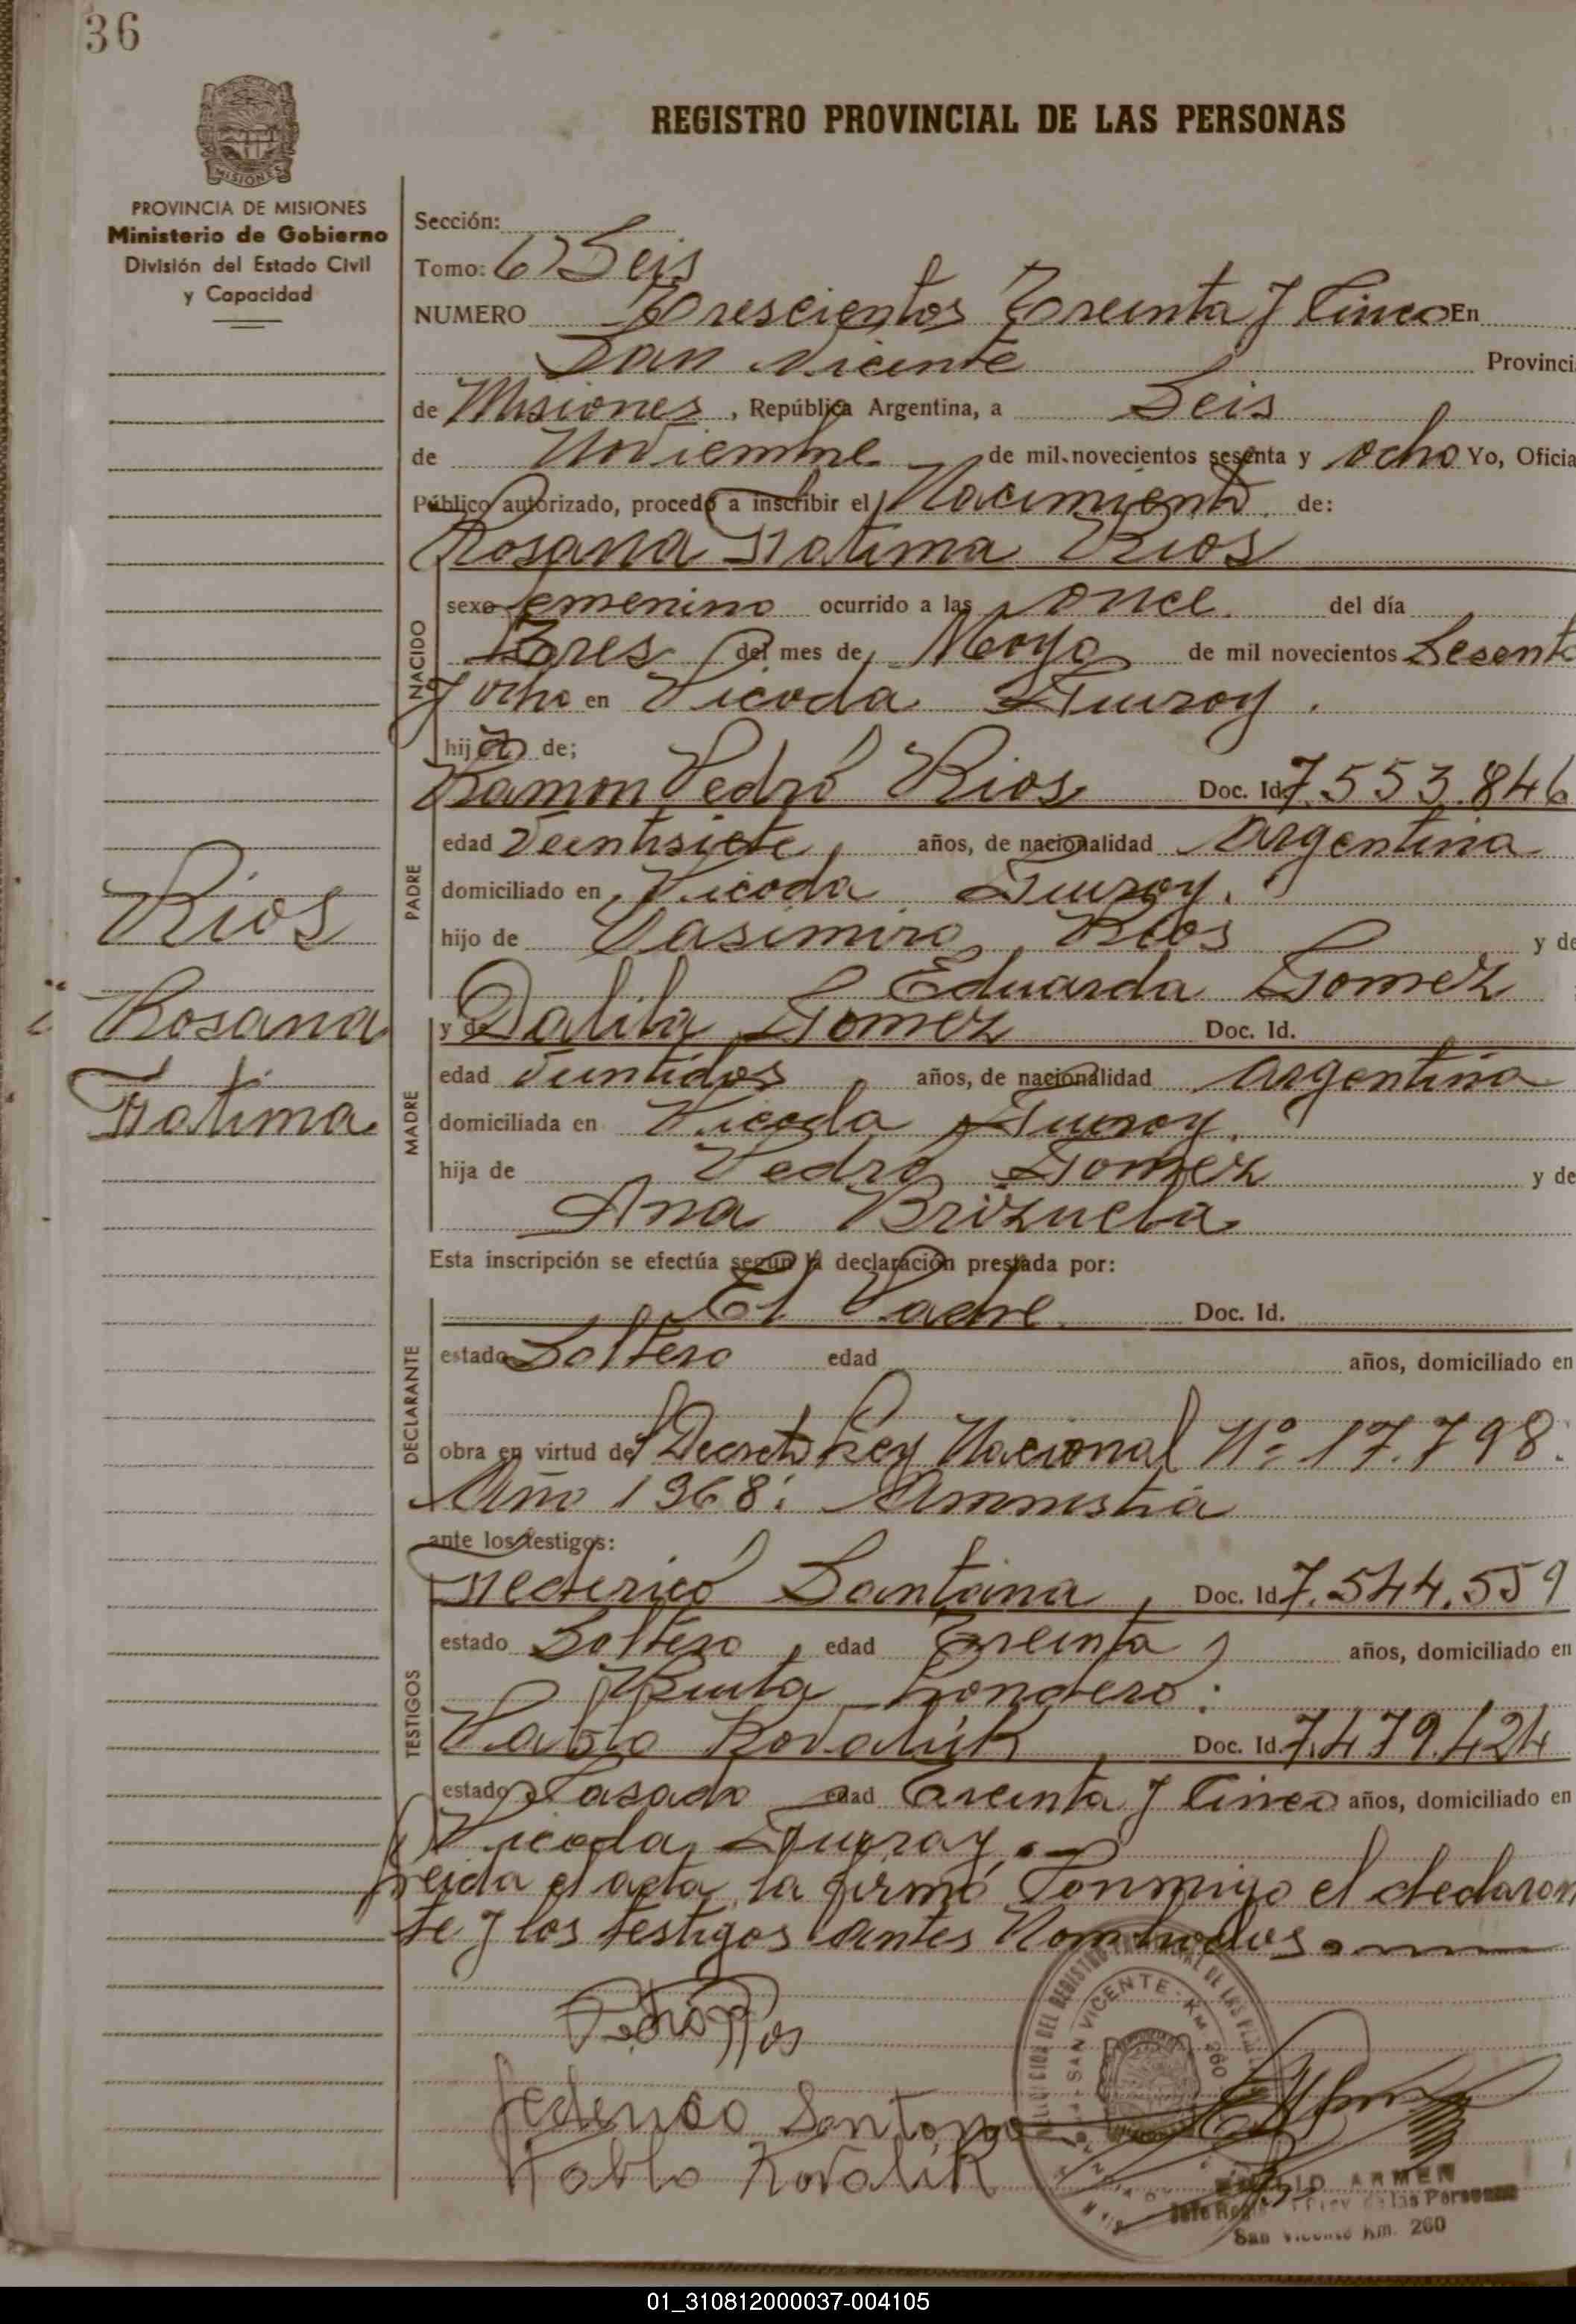 36
REGISTRO PROVINCIAL DE LAS PERSONAS
MISIONES
PROVINCIA DE MISIONES
Ministerio de Gobierno
División del Estado Civil
y Capacidad
Sección:
Tomo: 6) Seis
NUMERO Trescientos Treinta y Cinco En
San Vicente Provinci
de Misiones, República Argentina, a Seis
de Noviembre de mil novecientos sesenta y ocho Yo, Oficia
Público autorizado, procedo a inscribir el Nacimiento de:
Rosana Fatima Rios
NACIDO
sexo femenino ocurrido a las once del día
Tres del mes de Mayo de mil novecientos Sesenta
y ocho en Picada
hija de;
Ramon Pedro Rios Doc. Id. 7.553.846
PADRE
edad Veintisiete, años, de nacionalidad Argentina
domiciliado en Picada
hijo de Casimiro Rios y de
Eduarda Gomez
MADRE
y de Dalila Gomez Doc. Id.
edad Veintidos años, de nacionalidad Argentina
domiciliada en Picada
hija de Pedro Gomez y de
Ana Brizuela
Rios
Rosana
Fatima
Esta inscripción se efectúa según la declaración prestada por:
DECLARANTE
El Padre Doc. Id.
estado Soltero edad años, domiciliado en
obra en virtud de Decreto Ley Nacional Nº 17.798.
Año 1968: Amnistia
ante los testigos:
TESTIGOS
Federico Santana, Doc. Id. 7.544.559
estado Soltero, edad Treinta, años, domiciliado en
Londero.
Pablo Kovalik, Doc. Id. 7.479.424
estado Casado edad Treinta y Cinco años, domiciliado en
Picada
Leida el acta, la firmó Conmigo el declaran
te y los testigos antes Nombrados.
Pedro Rios
Federico Santana
Pablo Kovalik
SAN VICENTE - KM. 260
ARMEN
de las Personas
San Vicente Km. 260
01_310812000037-004105